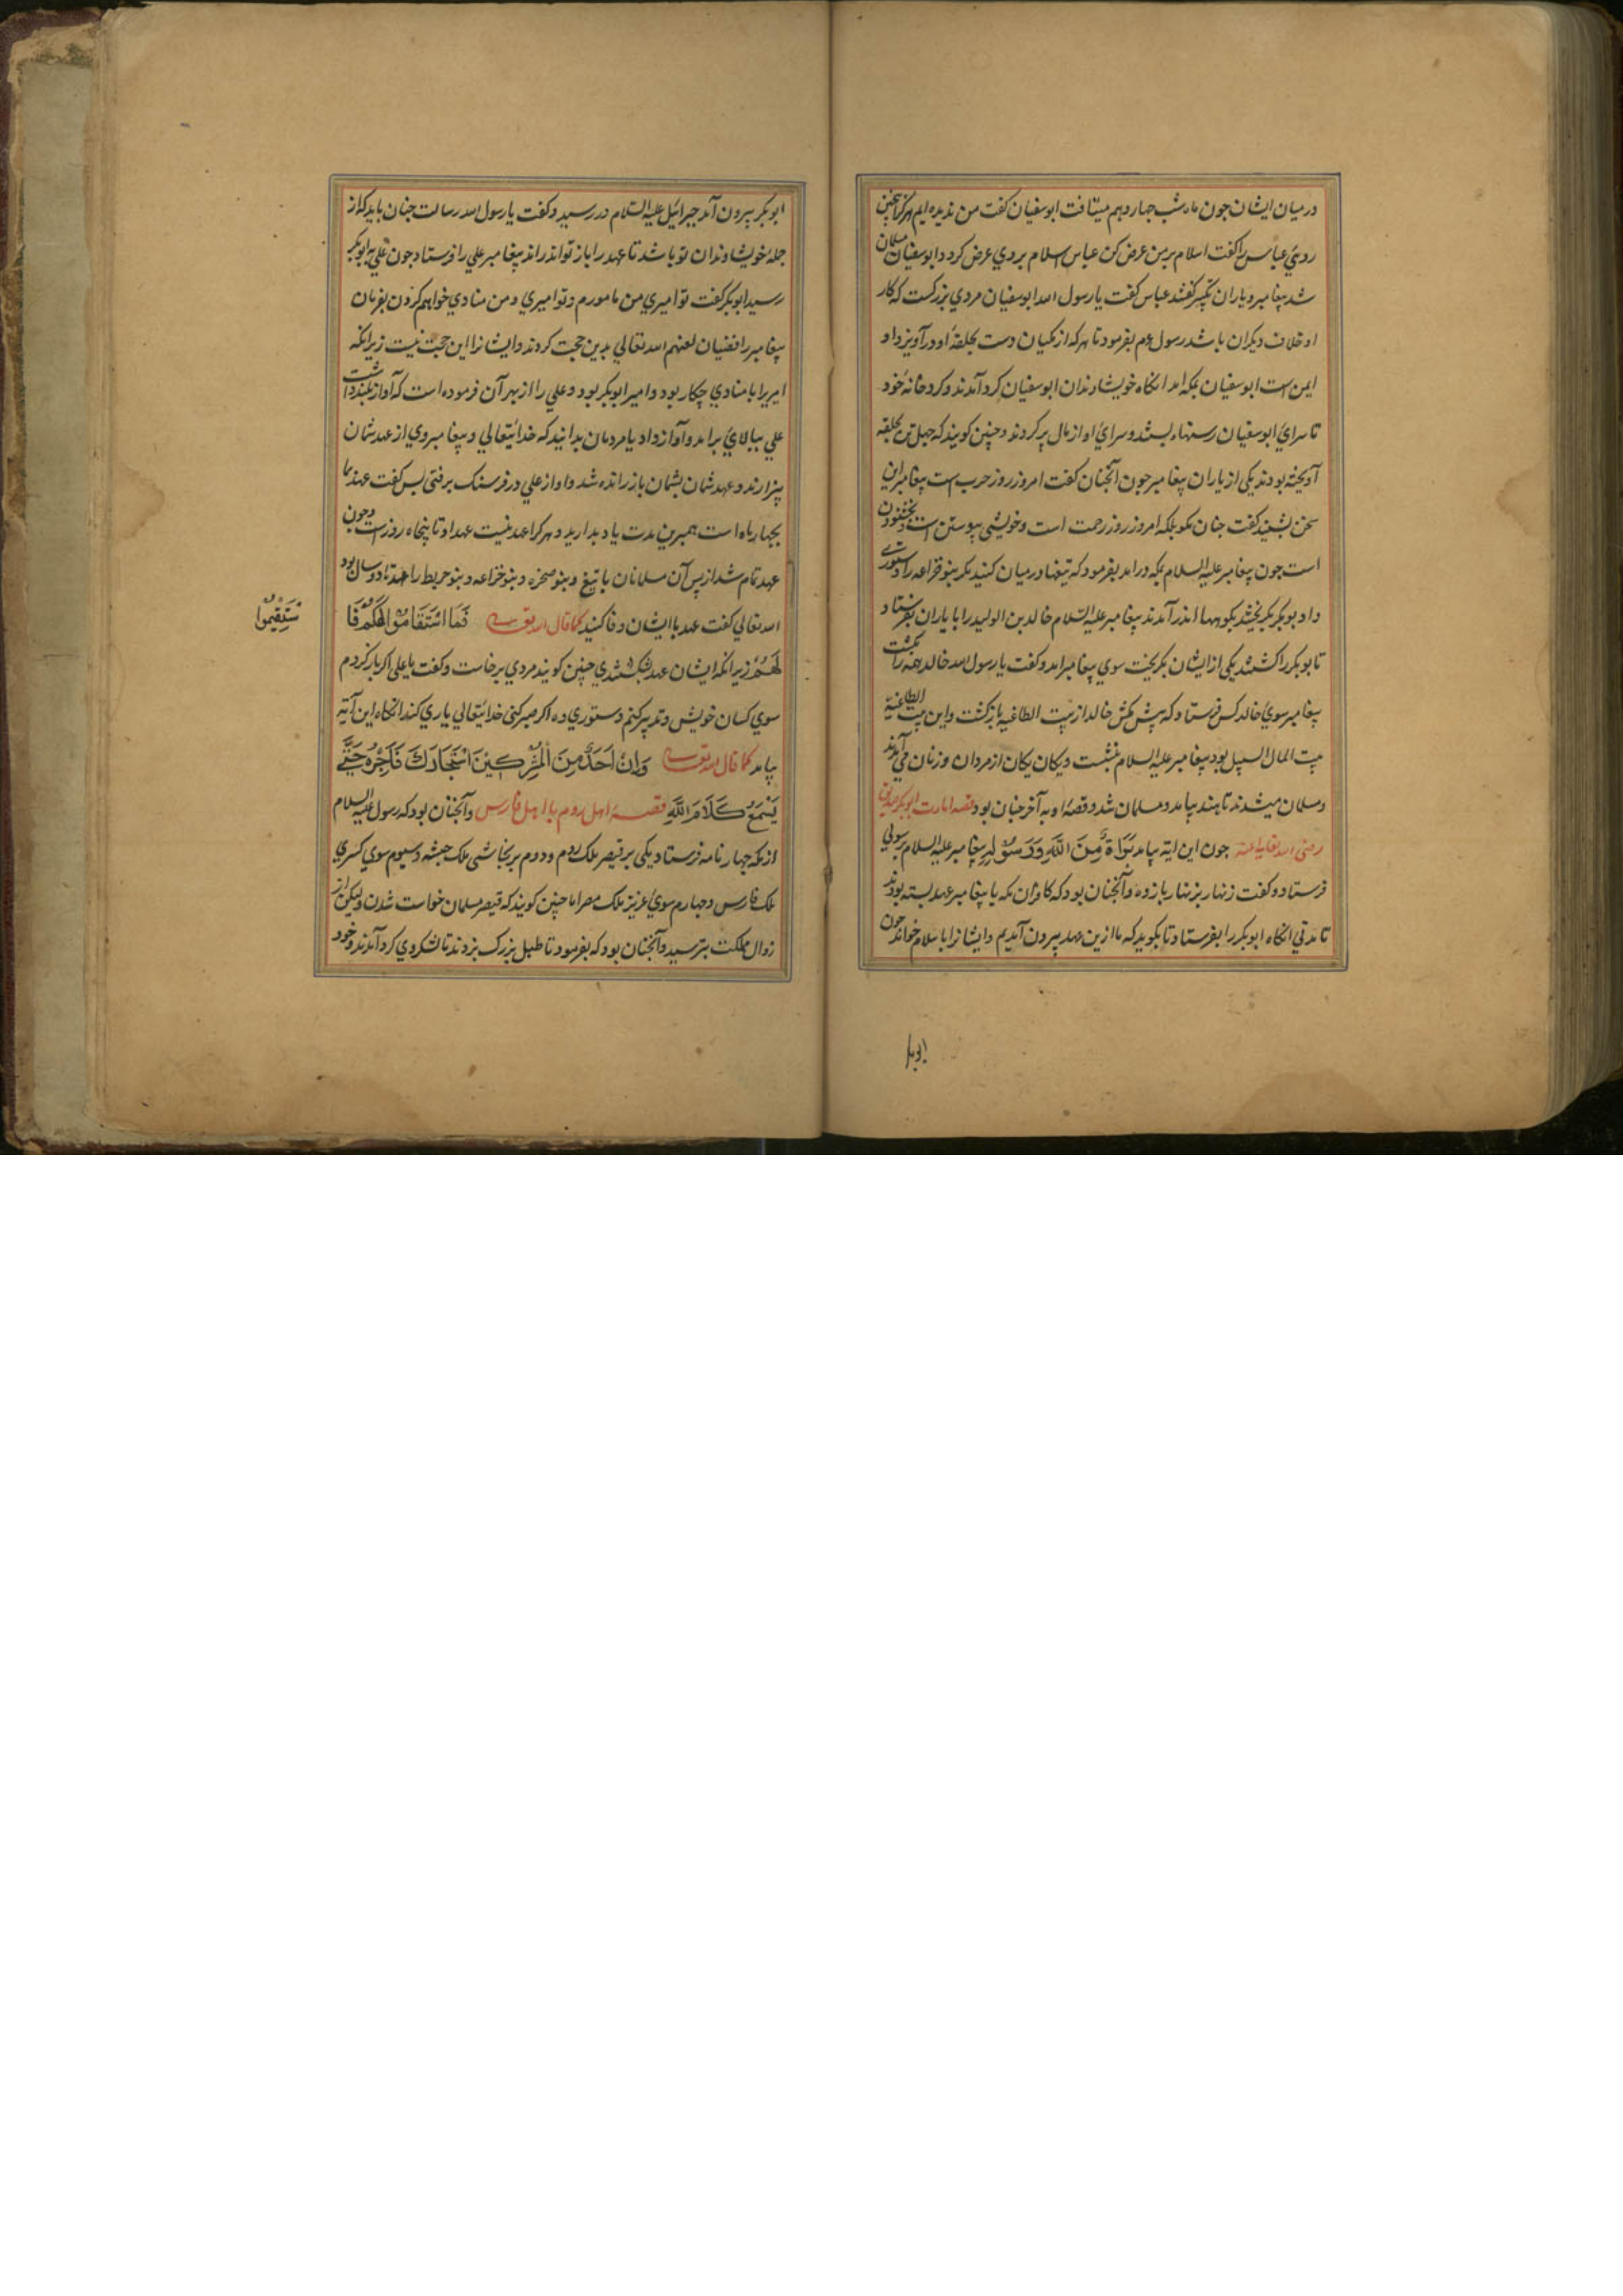 در میان ایشان جون ماه شب جهاردهم میتافت ابوسفیان کفت من ندیده ایم هرکز جنین
روی عباس را کفت اسلام بر من عرض کن عباس اسلام بر وی عرض کرد و ابوسفیان مسلمان
شد پیغامبر و یاران تکبیر کفتند عباس کفت یا رسول الله ابوسفیان مردی بزرکست که کار
او خلاف دیکران باشد رسول عم بفرمود تا هر که از مکیان دست بحلقهٔ او درآویزد او
ایمن است ابوسفیان بمکه امد انکاه خویشاوندان ابوسفیان کرد آمدند و کرد خانهٔ خود
تا سرای ابوسفیان رسنها ببستند و سرای او از مال پر کردند و چنین کویند که جهل تن بحلقه
آویخته بودند یکی از یاران پیغامبر جون آنجنان کفت امروز روز حرب است پیغامبر این
سخن بشنید کفت جنان مکو بلکه امروز روز رحمت است و خویشی پیوستن است و بخشودن
است جون پیغامبر علیه السلام بمکه درامد بفرمود که تیغها در میان کنید مکر بنو خزاعه را دستوری
داد بوبکر بکریختند بکوهها اندر آمدند پیغامبر علیه السلام خالد بن الولید را با یاران بفرستاد
تا بوبکر را کشتند یکی از ایشان بکریخت سوی پیغامبر امد و کفت یا رسول الله خالد همه را بکشت
پیغامبر سوی خالد کس فرستاد که بیش مکش خالد از بیت الطاغیه بازکشت و این بیت الطاغیه
بیت المال السبیل بود پیغامبر علیه السلام بنشست و یکان یکان از مردان و زنان می آمدند
و مسلمان میشدند تا هند بیامد و مسلمان شد و قصهٔ او به آخر جنان بود قصه امارت ابوبکر صدیق
رضی الله تعالی عنه جون این ایه بیامد بَرَاءَةٌ مِنَ اللَّهِ وَرَسُوْلِهِ پیغامبر علیه السلام رسولی
فرستاد و کفت زنهار بزنهار باز ده و آنجنان بود که کافران مکه با پیغامبر عهد بسته بودند
تا مدتی انکاه ابوبکر را بفرستاد تا بکوید که ما ازین عهد بیرون آمدیم و ایشانرا باسلام خواند جون
ابوبکر
ابوبکر بیرون آمد جبرائیل علیه السلام در رسید و کفت یا رسول الله رسالت جنان باید که از
جمله خویشاوندان تو باشد تا عهد را باز تواند راند پیغامبر علی را فرستاد جون علی به ابوبکر
رسید ابوبکر کفت تو امیری من مامورم و تو امیری و من منادی خواهم کردن بفرمان
پیغامبر رافضیان لعنهم الله تعالی بدین حجت کردند و ایشانرا این حجت نیست زیرانکه
امیر را با منادی چکار بود و امیر ابوبکر بود و علی را از بهر آن فرموده است که آواز بلند داشت
علی ببالای برامد و آواز داد یا مردمان بدانید که خدایتعالی و پیغامبر وی از عهد شمان
بیزارند و عهد شمان بشمان باز رانده شد و اواز علی در فرسنک برفتی پس کفت عهد ما
بجهار ماه است همبرین مدت یاد بدارید و هر کرا عهد نیست عهد او تا پنجاه روز است و جون
عهد تمام شد از پس آن مسلمانان با تیغ و بنو ضمره و بنو خزاعه و بنو حریط را عهد تا دو سال بود
الله تعالی کفت عهد با ایشان وفا کنید کما قال الله تعالی فَمَا اسْتَقَامُوْا لَكُمْ فَا
سْتَقِيْمُوا
لَهُمْ زیرانکه ایشان عهد بشکستندی چنین کویند مردی برخاست و کفت یا علی اکر باز کردم
سوی کسان خویش و تدبیر کنم دستوری ده اکر صبر کنی خدایتعالی یاری کند انکاه این آیه
بیامد کما قال الله تعالی وَاِنْ اَحَدٌ مِنَ الْمُشْرِكِيْنَ اسْتَجَارَكَ فَاَجِرْهُ حَتَّى
يَسْمَعَ كَلَامَ اللَّهِ قصهٔ اهل روم با اهل فارس و آنجنان بود که رسول علیه السلام
از مکه جهار نامه فرستاد یکی بر قیصر ملک روم و دوم بر نجاشی ملک حبشه و سیوم سوی کسری
ملک فارس و جهارم سوی عزیز ملک مصر اما جنین کویند که قیصر مسلمان خواست شدن ولیکن از
زوال مملکت بترسید و آنجنان بود که بفرمود تا طبل بزرک بزدند تا لشکر وی کرد آمدند و خود